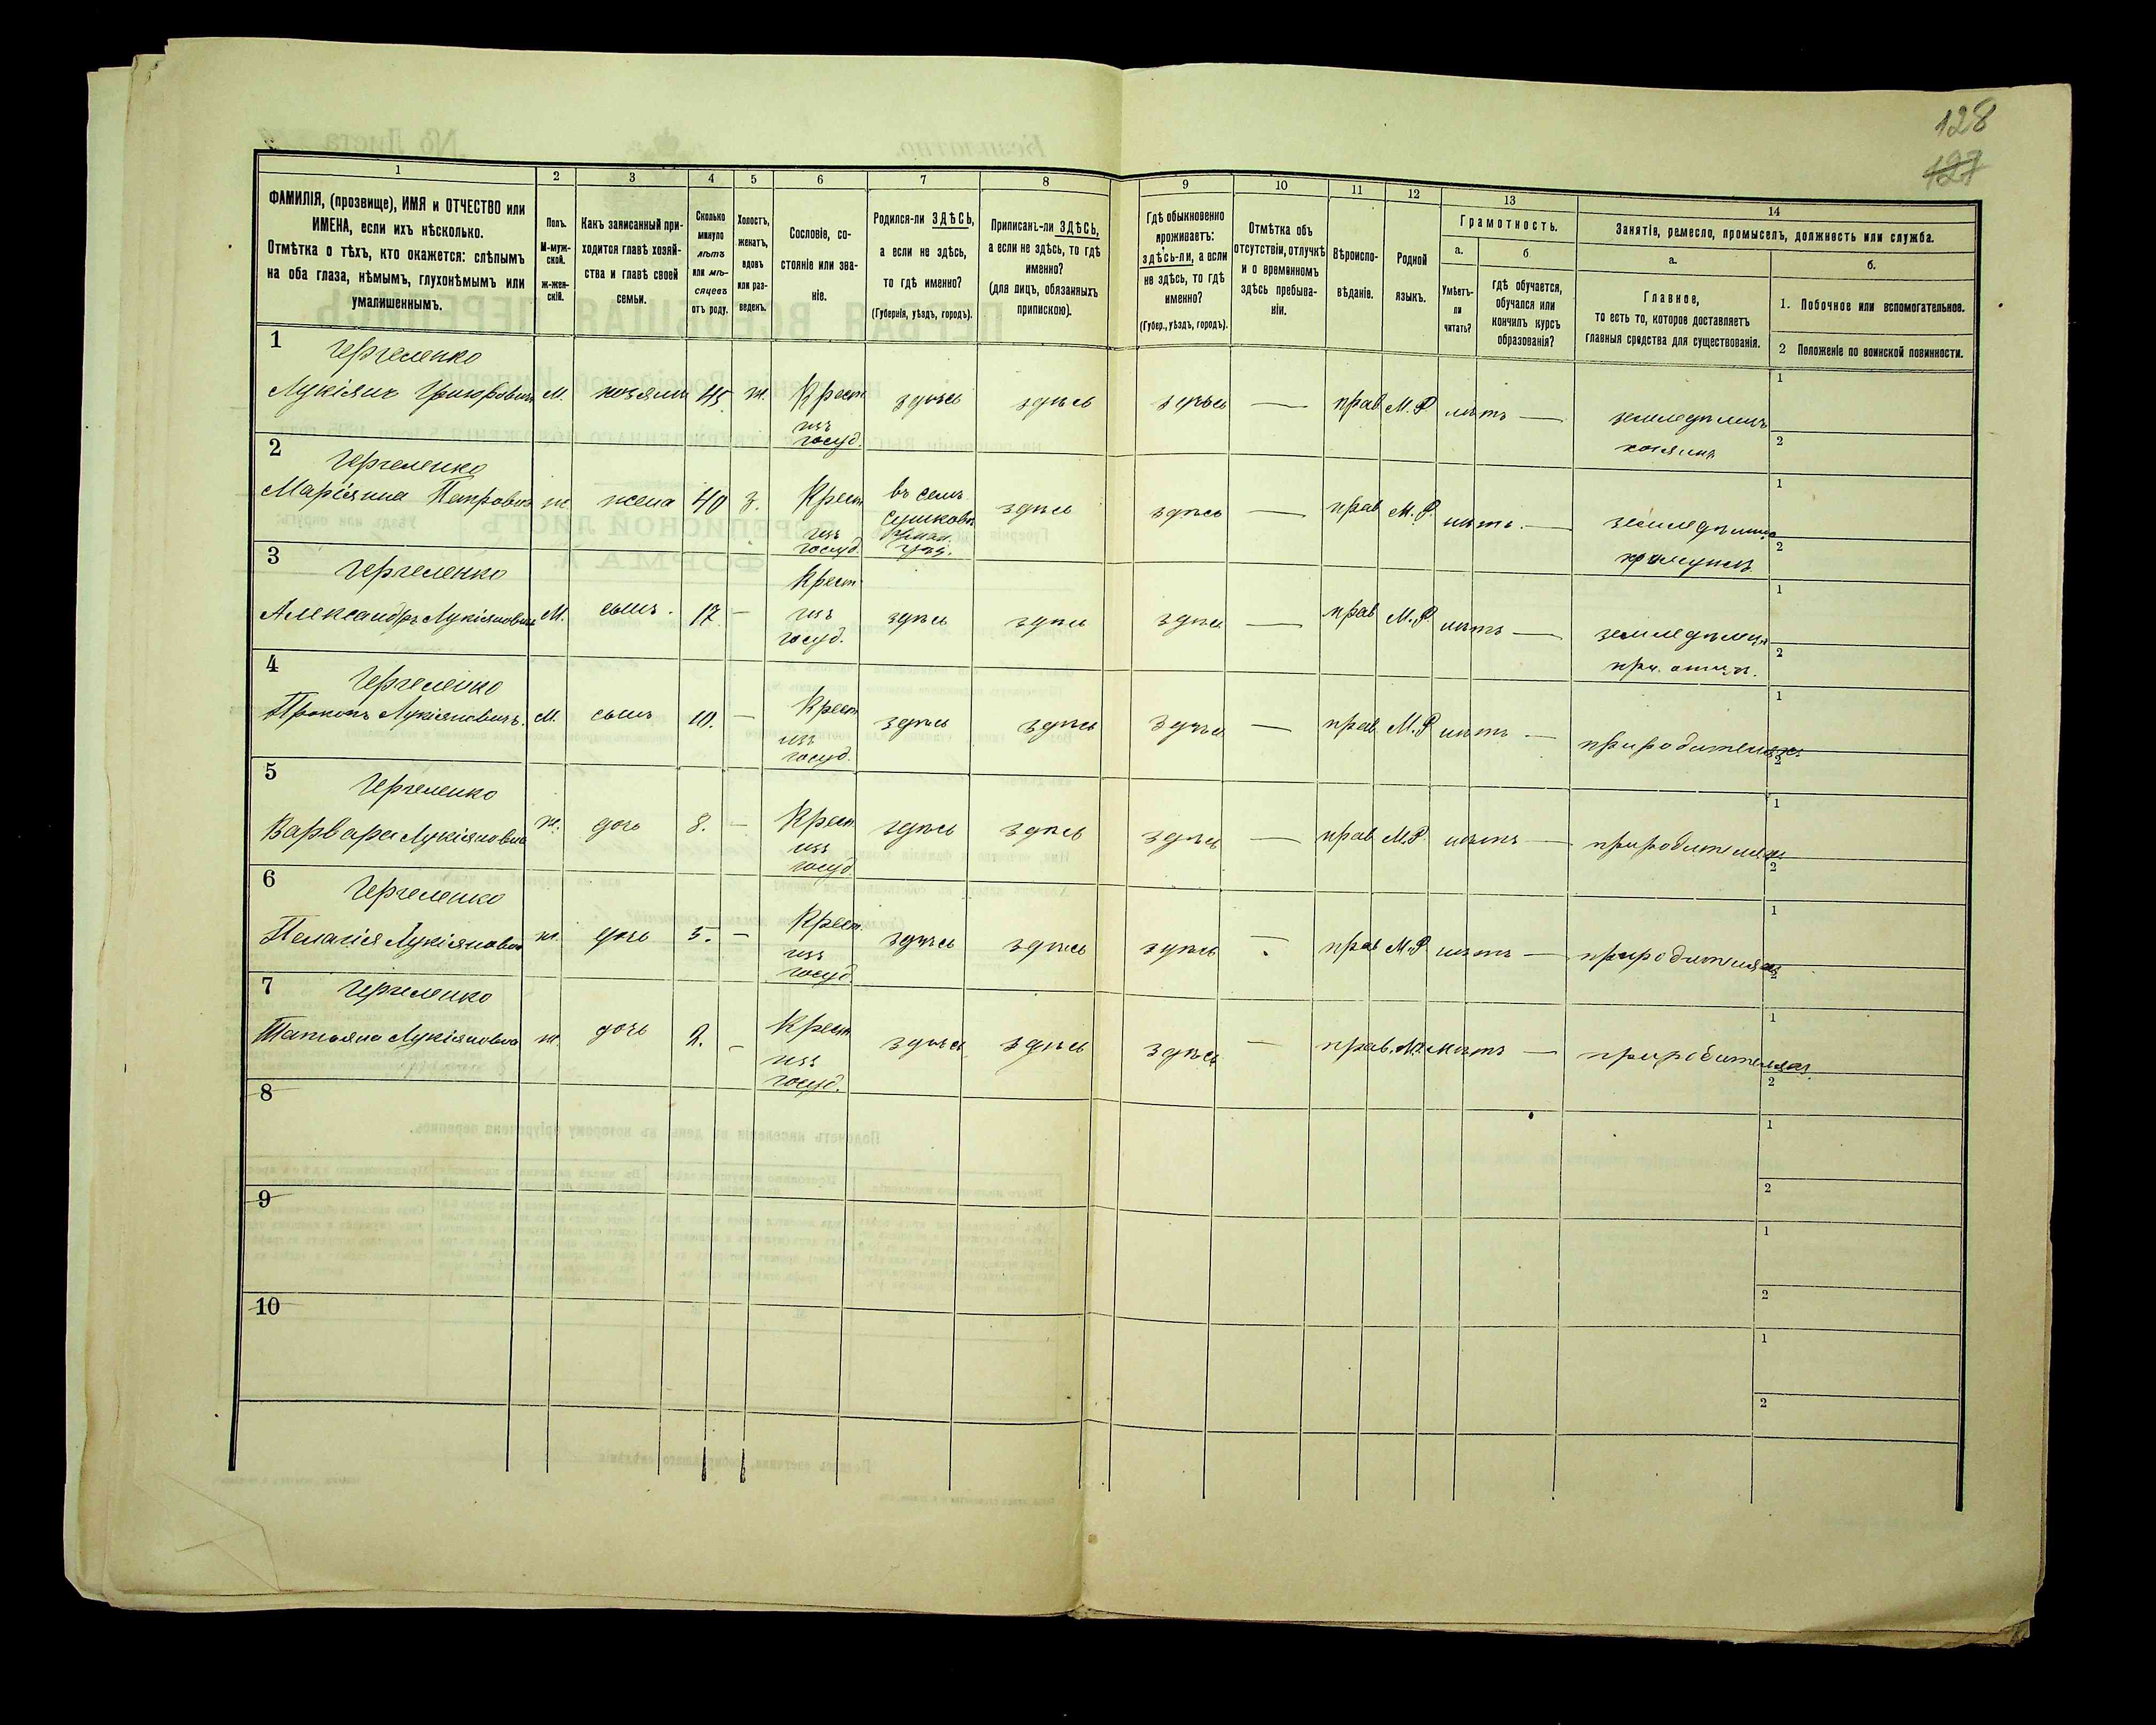 128
127
1
2
3
4
5
6
7
8
9
10
11
12
13
14
ФАМИЛІЯ, (прозвище), ИМЯ и ОТЧЕСТВО или
ИМЕНА, если ихъ нѣсколько.
Отмѣтка о тѣхъ, кто окажется: слѣпымъ
на оба глаза, нѣмымъ, глухонѣмымъ или
умалишеннымъ.
Полъ.
М-муж-
ской.
Ж-жен-
скій.
Какъ записанный при-
ходится главѣ хозяй-
ства и главѣ своей
семьи.
Сколько
минуло
лѣтъ
или мѣ-
сяцевъ
отъ роду.
Холостъ,
женатъ,
вдовъ
или раз-
веденъ.
Сословіе, со-
стояніе или зва-
ніе.
Родился-ли ЗДѢСЬ,
а если не здѣсь,
то гдѣ именно?
(Губернія, уѣздъ, городъ).
Приписанъ-ли ЗДѢСЬ,
а если не здѣсь, то гдѣ
именно?
(для лицъ, обязанныхъ
припискою).
Гдѣ обыкновенно
проживаетъ:
здѣсь-ли, а если
не здѣсь, то гдѣ
именно?
(Губер., уѣздъ, городъ).
Отмѣтка объ
отсутствіи, отлучкѣ
и о временномъ
здѣсь пребыва-
ніи.
Вѣроиспо-
вѣданіе.
Родной
языкъ.
Грамотность.
а.
Умѣетъ-
ли
читать?
б
гдѣ обучается,
обучался или
кончилъ курсъ
образованія?
Занятія, ремесло, промыселъ, должность или служба.
а.
Главное,
то есть то, которое доставляетъ
главныя средства для существованія.
б.
1. Побочное или вспомогательное.
2 Положеніе по воинской повинности.
1
Лукіянъ М. хозяинъ 45. ж. Крест. здѣсь здѣсь здѣсь — прав М.Р нѣтъ — земледѣлецъ 1
изъ
госуд. хозяинъ 2
2
Маріяна Петровна ж. жена 40 з. Крест въ селѣ здѣсь здѣсь — прав М.Р. нѣтъ. — 1
изъ
госуд. 2
3
Александръ Лукіяновичъ М. сынъ. 17. — Крест здѣсь здѣсь здѣсь — прав М.Р нѣтъ — земледѣлецъ 1
изъ
госуд. при. отцѣ. 2
4
Прокопъ Лукіяновичъ. М. сынъ 10. — Крест здѣсь здѣсь здѣсь — прав М.Р нѣтъ — при родителяхъ 1
изъ
госуд. 2
5
Варвара Лукіяновна ж. дочь 8. — Крест. здѣсь здѣсь здѣсь — прав М.Р. нѣтъ — при родителяхъ 1
изъ
госуд 2
6
Пелагія Лукіяновна ж. дочь 5. — Крест. здѣсь здѣсь здѣсь — прав М.Р нѣтъ — при родителяхъ 1
изъ
госуд. 2
7
Татьяна Лукіяновна ж. дочь 2. — Крест. здѣсь здѣсь здѣсь — прав. М.Р. нѣтъ — при родителяхъ 1
изъ
госуд. 2
8
1
2
9
1
2
10
1
2